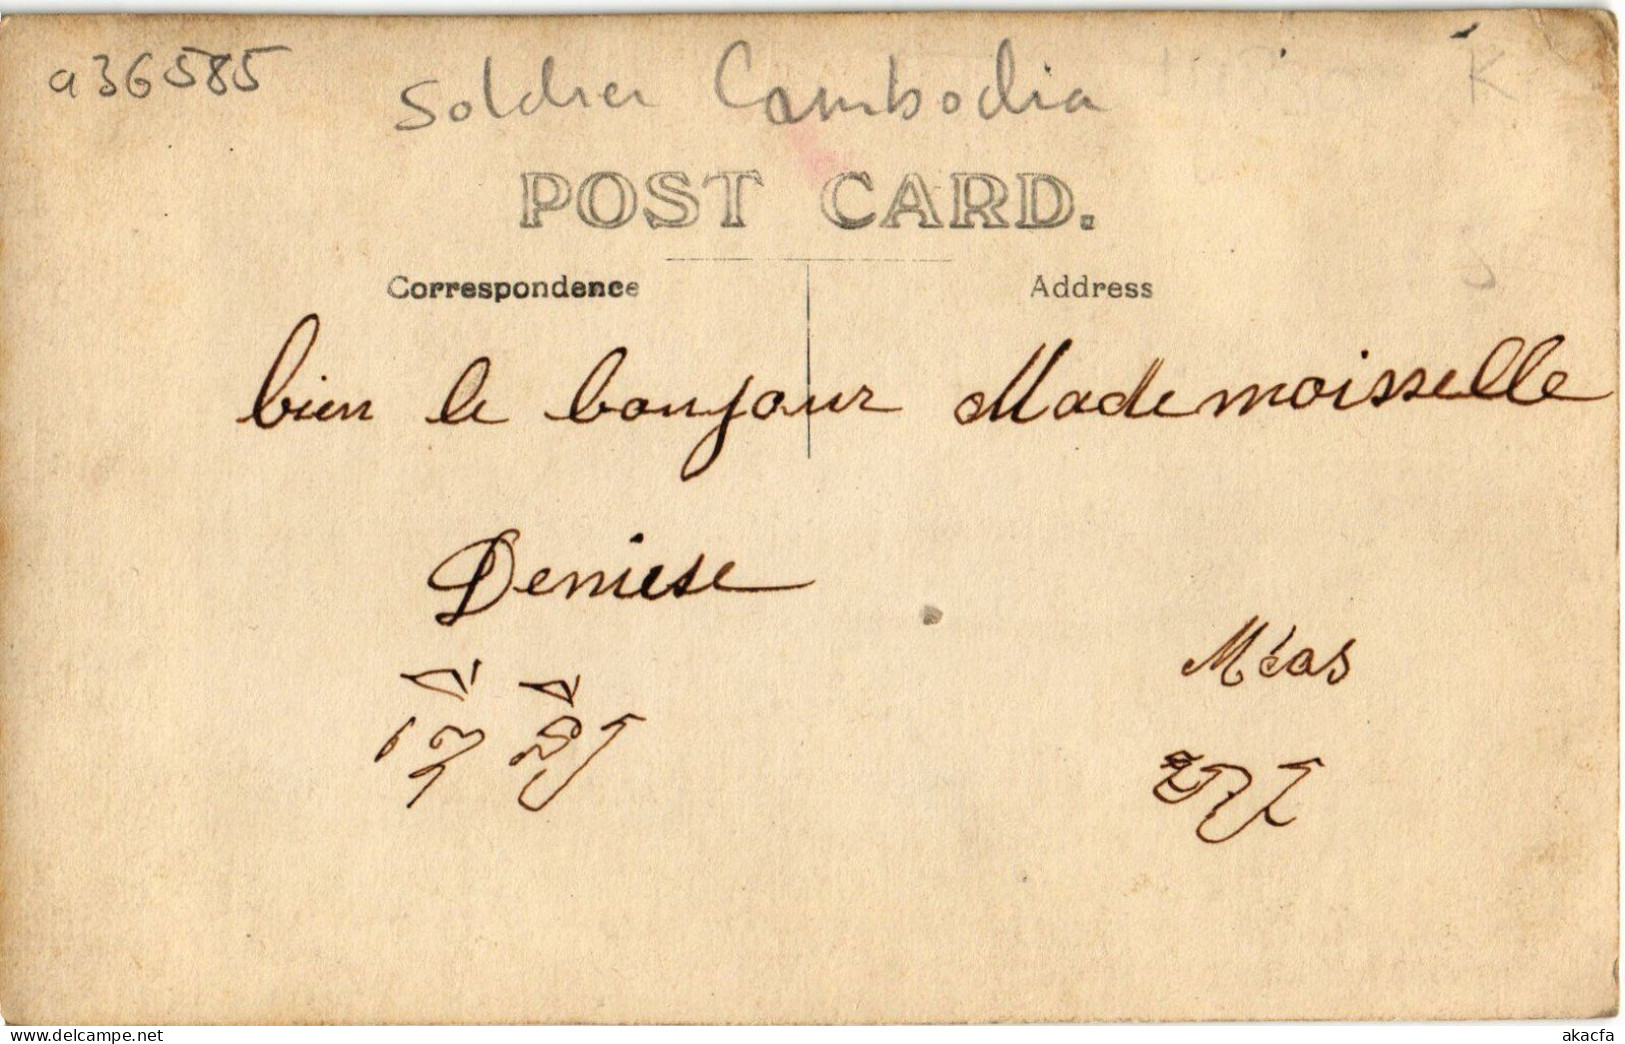 a36585
Soldier Cambodia
POST CARD.
Correspondence
Address
bien le bonjour Mademoisselle
Deniese
Méas
www.delcampe.net
akacfa